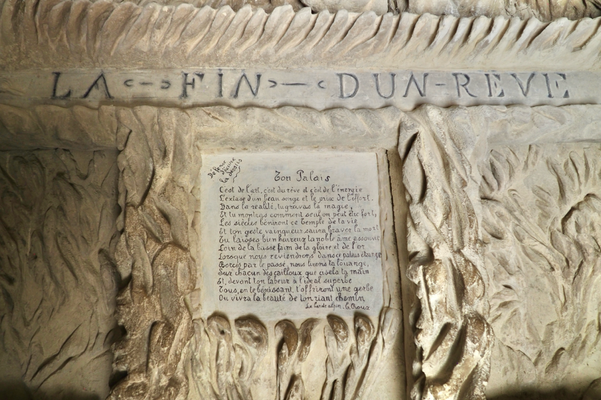 LA FIN D'UN REVE
Ton Palais
C'est de l'art, c'est du rêve et c'est de l'énergie
L'extase d'un beau songe et le prix de l'effort.
Dans la réalité, tu gravas la magie,
Et tu montras comment seul on peut être fort,
Les siècles béniront ce temple de la vie
Et ton geste vainqueur saura braver la mort
Loin de la basse faim de la gloire et de l'or
Lorsque nous reviendrons dans ce palais étrange
Bercés par le passé, nous lirons ta louange,
Sur chacun des cailloux que cisela ta main
Et, devant ton labeur à l'idéal superbe
Tous, en te bénissant, t'offriront une gerbe
Où vivra la beauté de ton riant chemin